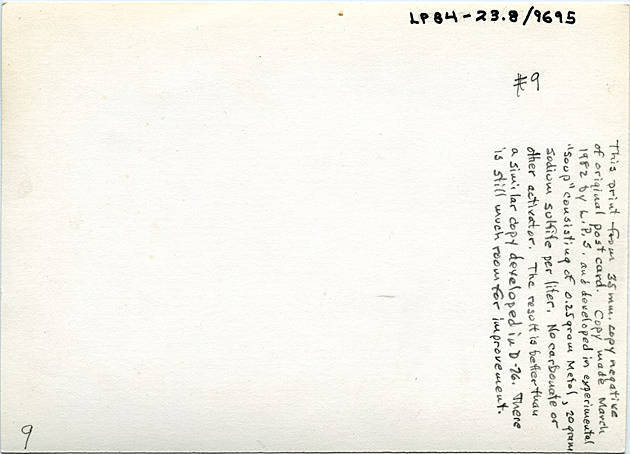 LP84-23.8/9695
#9
This print from 35 mm. copy negative
of original post card. Copy made March
1982 by L.P.S. and developed in experimental
"soup" consisting of 0.25 gram Metol, 20 gram
sodium sulfite per liter. No carbonate or
other activator. The result is better than
a similar copy developed in D-76. There
is still much room for improvement.
9